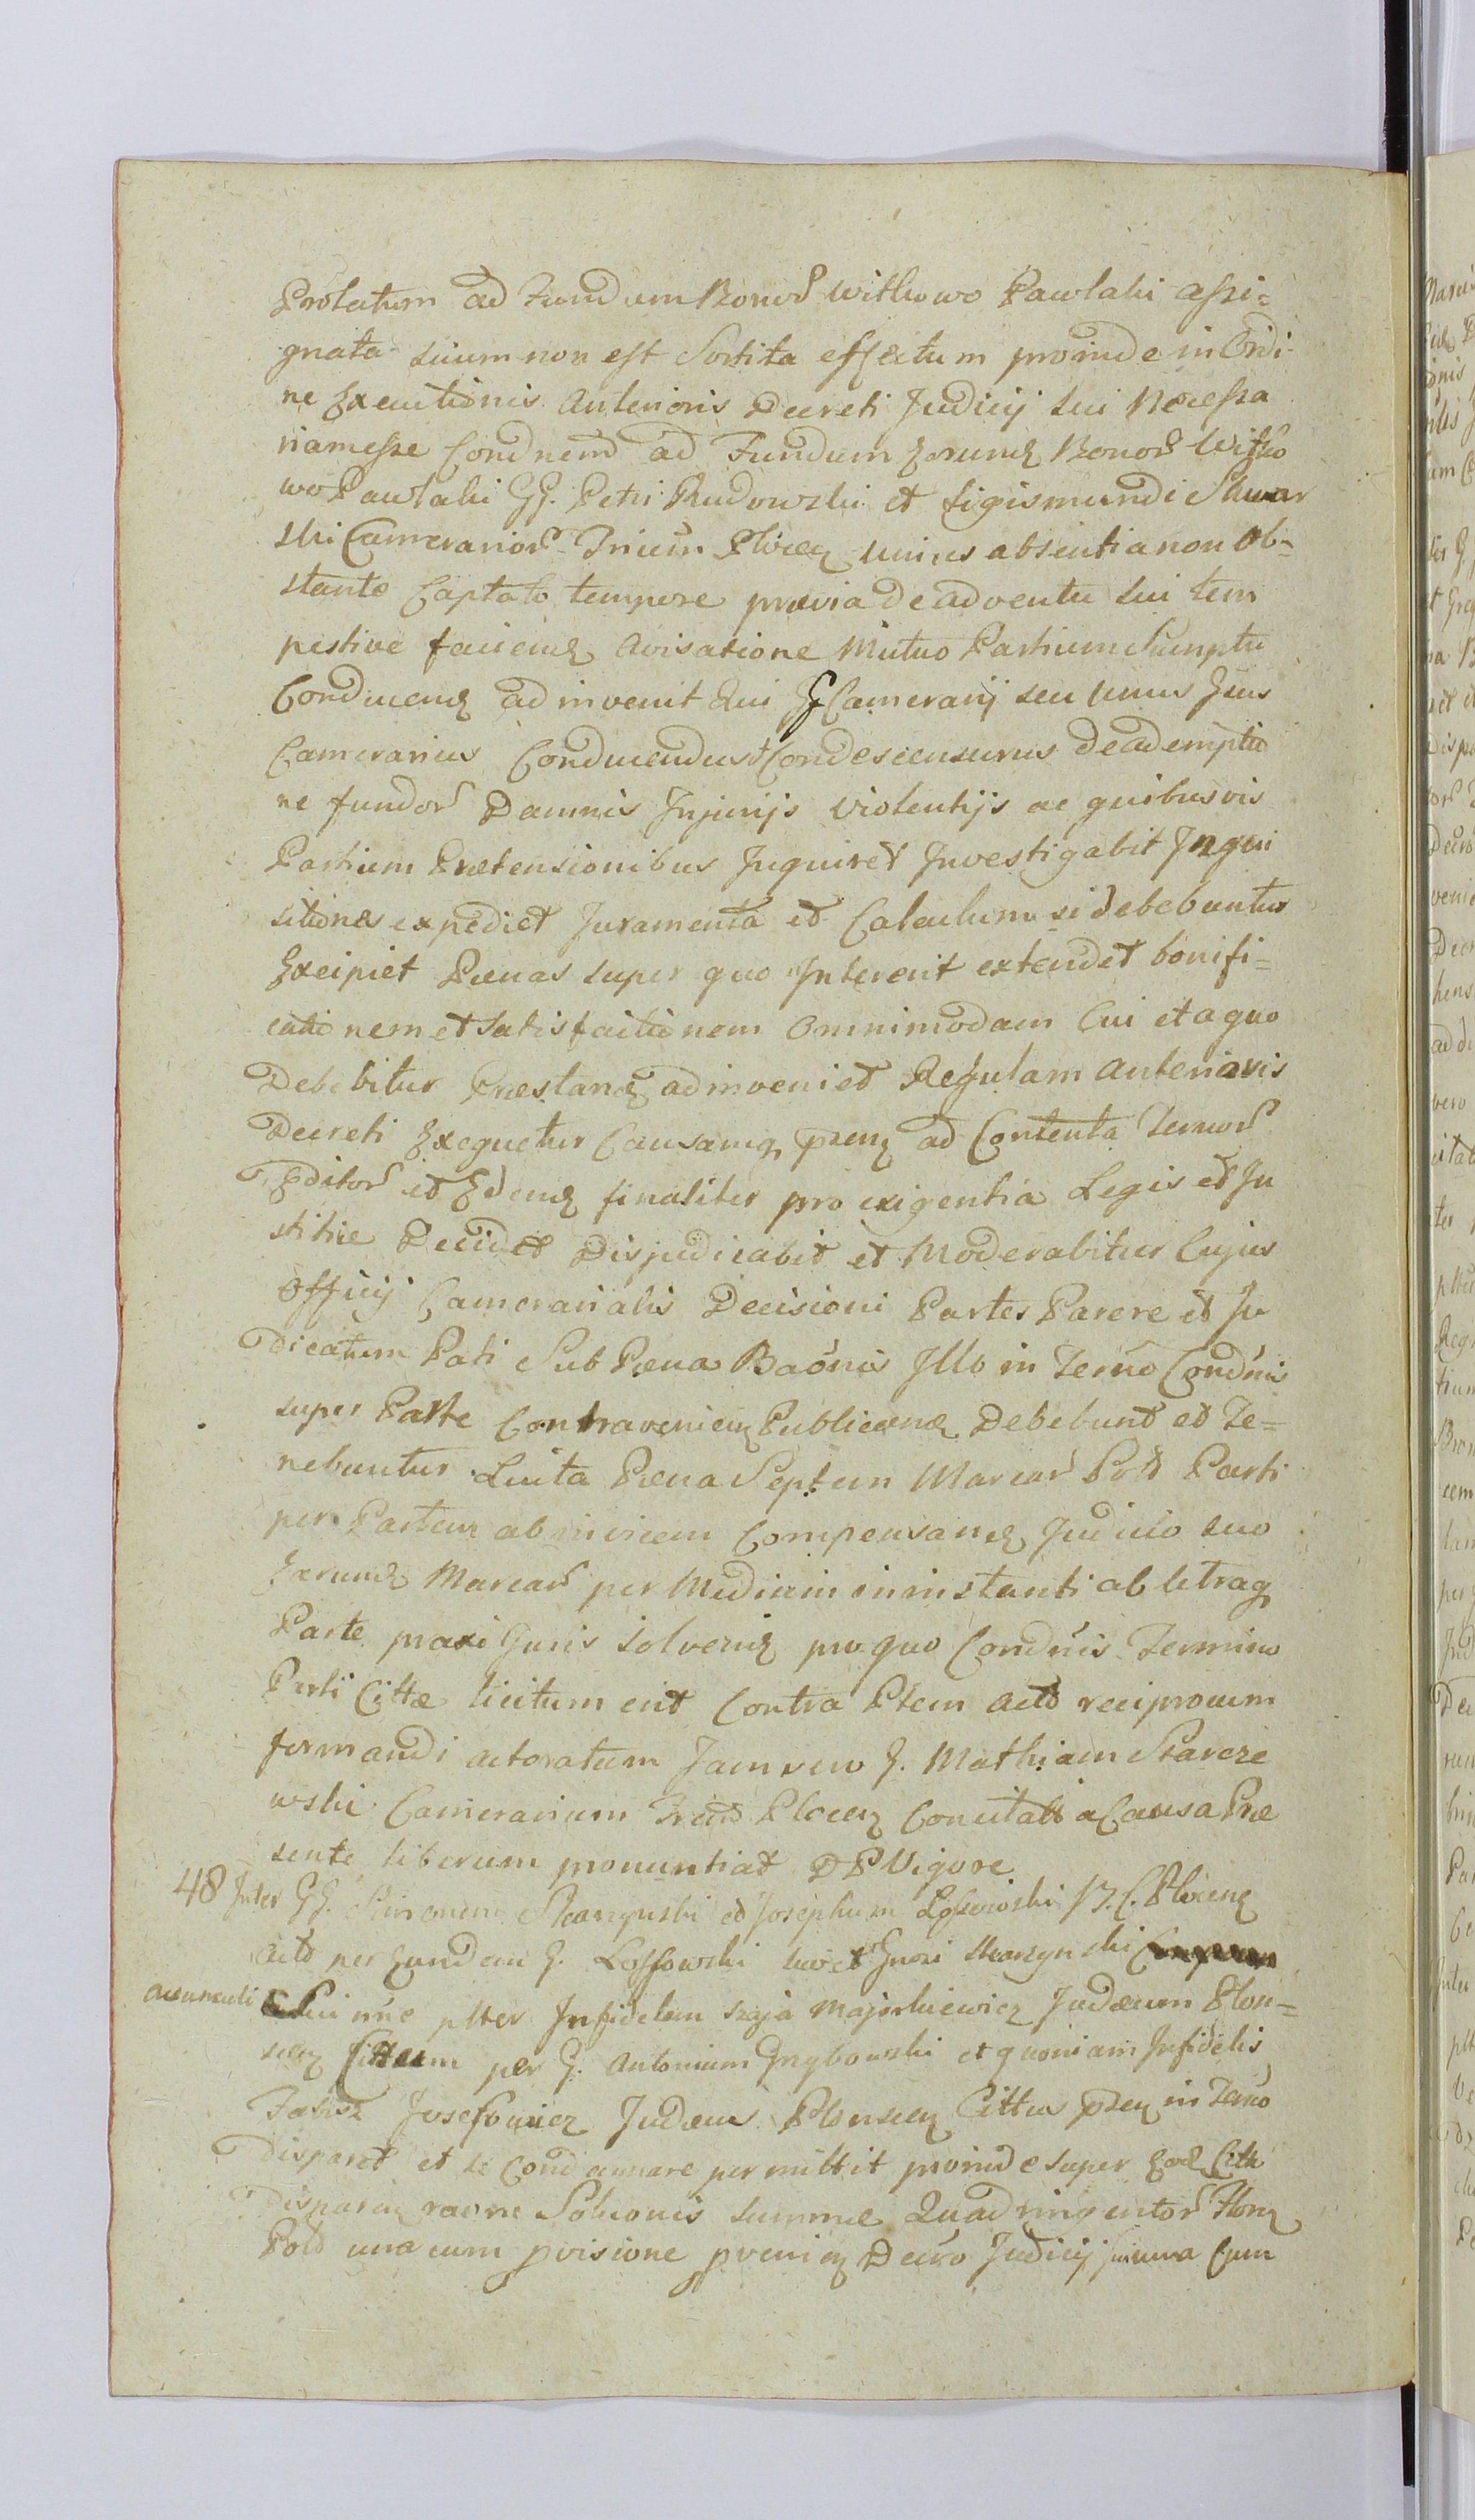 Prolatum ad Fundum Bonor Witkowo Pawlaki assi=
gnata suum non est Sortita effectum proinde in Ordi-
ne Executionis Anterioris Decreti Judicij sui Necessa
riam esse Condnem ad Fundum Eorunq Bonor Witko
wo Pawlaki GG. Petri Rudowski et Sigismundi Skwar
ski Camerarior Trium Plocen unius absentia non Ob-
stante Captato tempore prævia de adventu sui tem
pestive facienq Avisatione Mutuo Partium Sumptu
Conducenq adinvenit Qui GG Camerarij seu unus Jeus
Camerarius Conducendus & Condescensurus de ademptio
ne fundor Damnis Injurijs Violentijs ac quibusvis
Partium Prætensionibus Inquiret Investigabit Inqui
sitiones expediet Juramenta et Calculum si debebuntur
Excipiet Pœnas super quo Intererit extendet bonifi=
cationem et Satisfactionem Omnimodam Cui et a quo
Debebitur Præstanq adinveniet Regulam Anterioris
Decreti Exequetur Causamq pzenq ad Contenta Termor
Editor et Edenq finaliter pro exigentia Legis et Ju
stitiæ Decidet Disjudicabit et Moderabitur Cujus
Officij Camerarialis Decisioni Partes Parere et Ju
dicatum Pati Sub Pœna Baonis Illo in Termo Condnis
super Parte Contravenienq Publicanq Debebunt et Te=
nebuntur Luita Pœna Septem Marcar Pold Parti
per Partem ab invicem Compensanq Judicio suo
Earunq Marcar per Medium in instanti ab Utraq
Parte praxi Juris solvenq pro quo Condnis Termino
Parti Cittæ licitum erit Contra Ptem Actto reciprocum
formandi actoratum Jam vero G. Mathiam Skarcze
wski Camerarium Plocen Concitatt a Causa Præ
sente liberum pronuntiat D P Vigore
48 Inter GG. Simonem Skarzynski et Josephum Lossowski B. C. Plocenq
Actto per Eundem G. Lossowski suo et Gnosi Skarzynski
Avunculi Sui nnc plter Infidelem Szaja Majorkiewicz Judæum Plon=
scenq Cittum per G. Antonium Grzybowski et quoniam Infidelis
Josefowicz Judæus Plonscenq Cittus pzenq in Termo
Disparet et se Condemnare permittit proinde super Eod Citto
Disparenq raone Soluonis summæ Quadringentor Flor
Pold una cum provisione prvenienq Decro Judicij sui una Cum